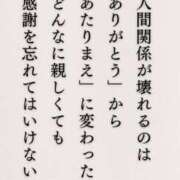 人間関係が壊れるのは
ありがとう」から
あたりまえ」に変わった
どんなに親しくても
感謝を忘れてはいけない